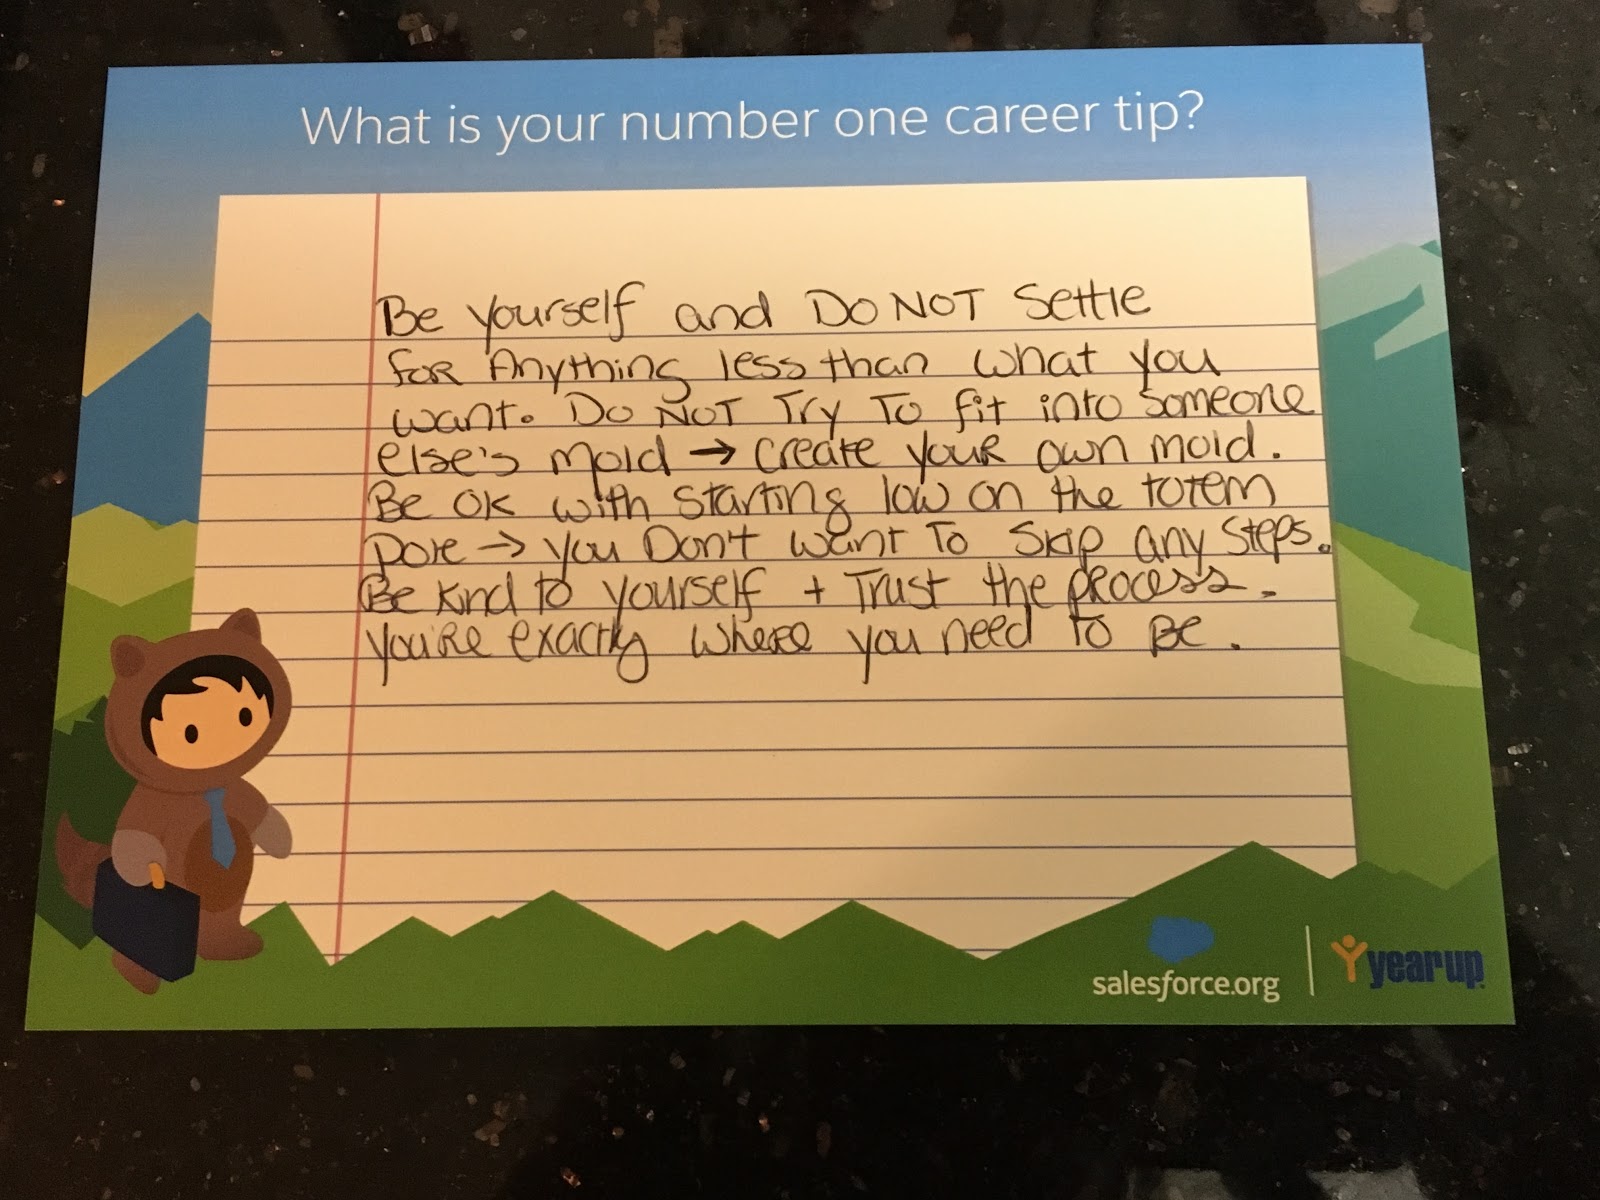 What is your number one career tip?
Be yourself and DO NOT Settle
for Anything less than what you
want. DO NOT Try To fit into someone
else's mold → create your own mold.
Be OK with starting low on the totem
pole → you Don't want To Skip any steps.
Be kind to yourself + Trust the process.
You're exactly where you need to Be.
salesforce.org
year up